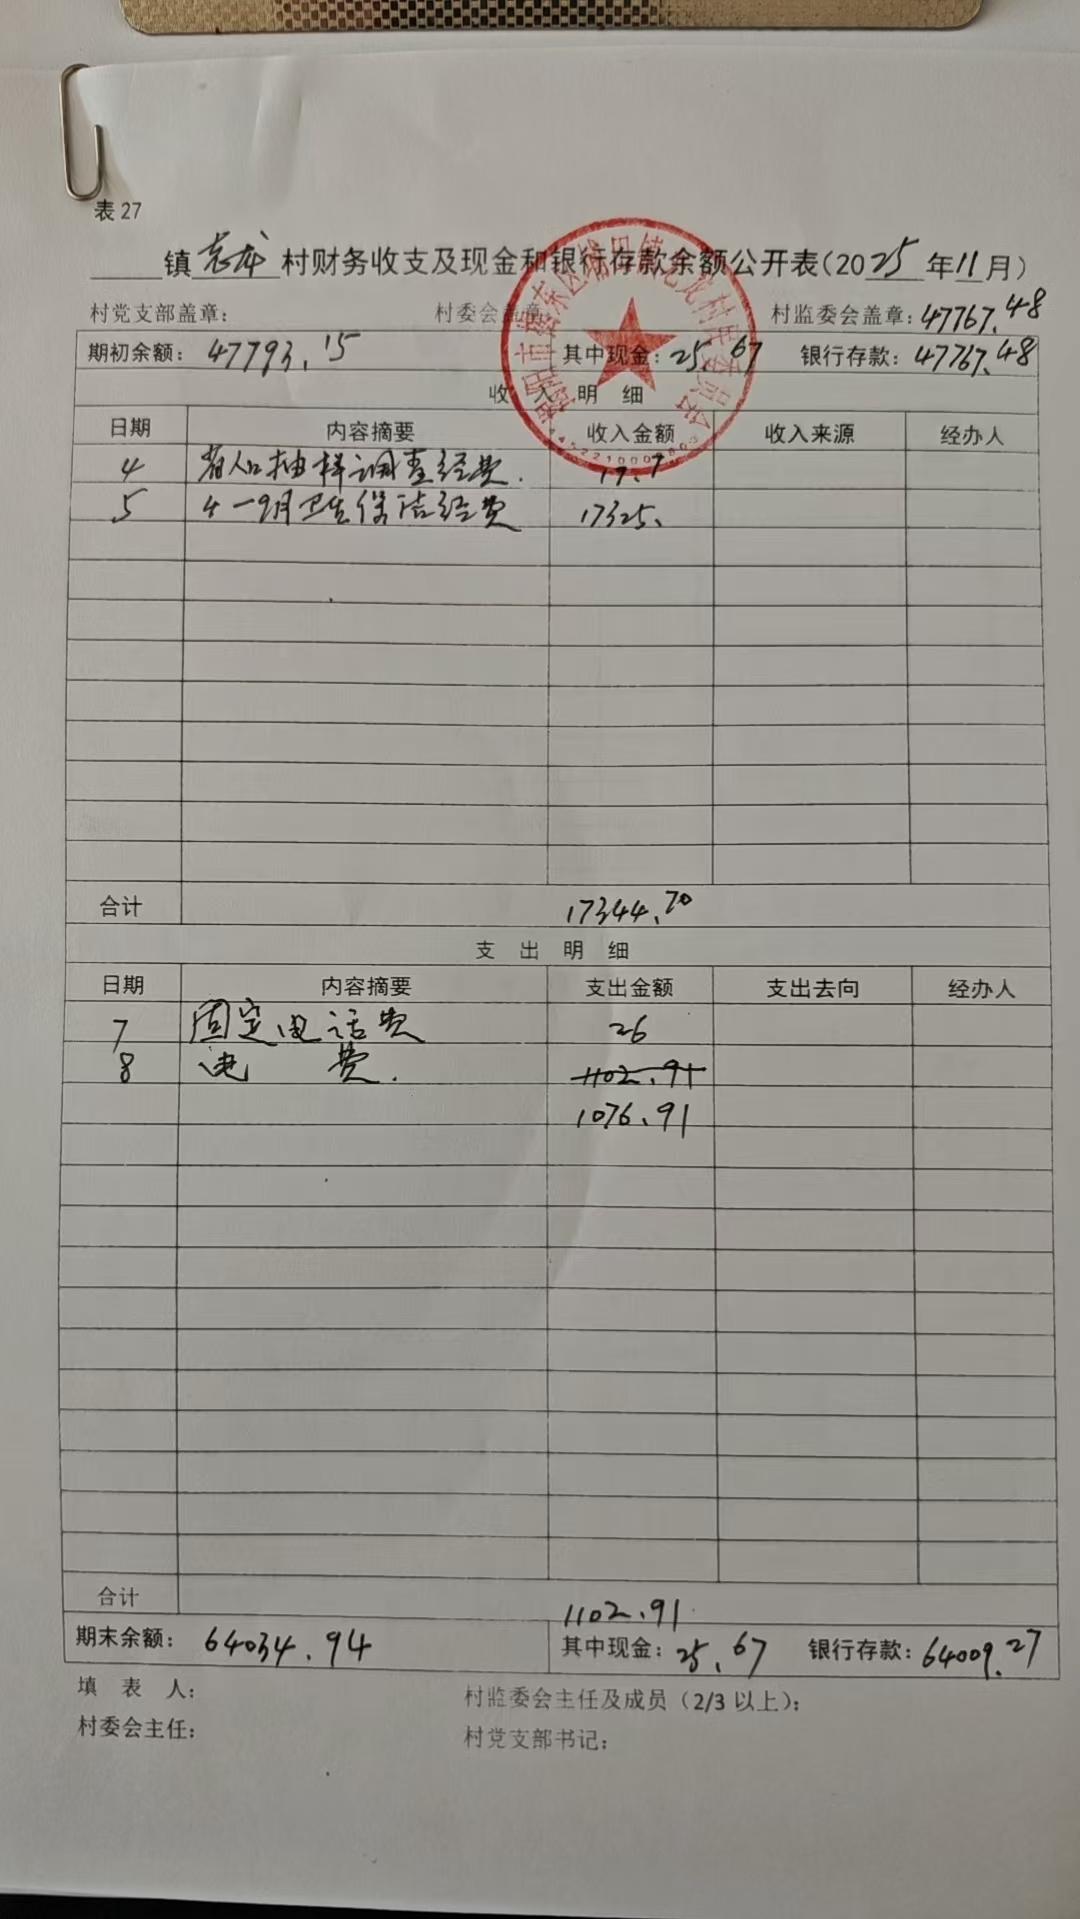 表 27
镇 老龙 村财务收支及现金和银行存款余额公开表(2025 年 11 月)
村党支部盖章: 村委会盖章: 村监委会盖章: 47767.48
期初余额: 47793.15 其中现金: 25.67 银行存款: 47767.48
收 入 明 细
日期 内容摘要 收入金额 收入来源 经办人
4 省人口抽样调查经费. 19.7
5 4-9月卫生保洁经费 17325.
合计 17344.70
支 出 明 细
日期 内容摘要 支出金额 支出去向 经办人
7 固定电话费 26
8 电 费. 1102.91
1076.91
合计 1102.91
期末余额: 64034.94 其中现金: 25.67 银行存款: 64009.27
填 表 人: 村监委会主任及成员(2/3 以上):
村委会主任: 村党支部书记: